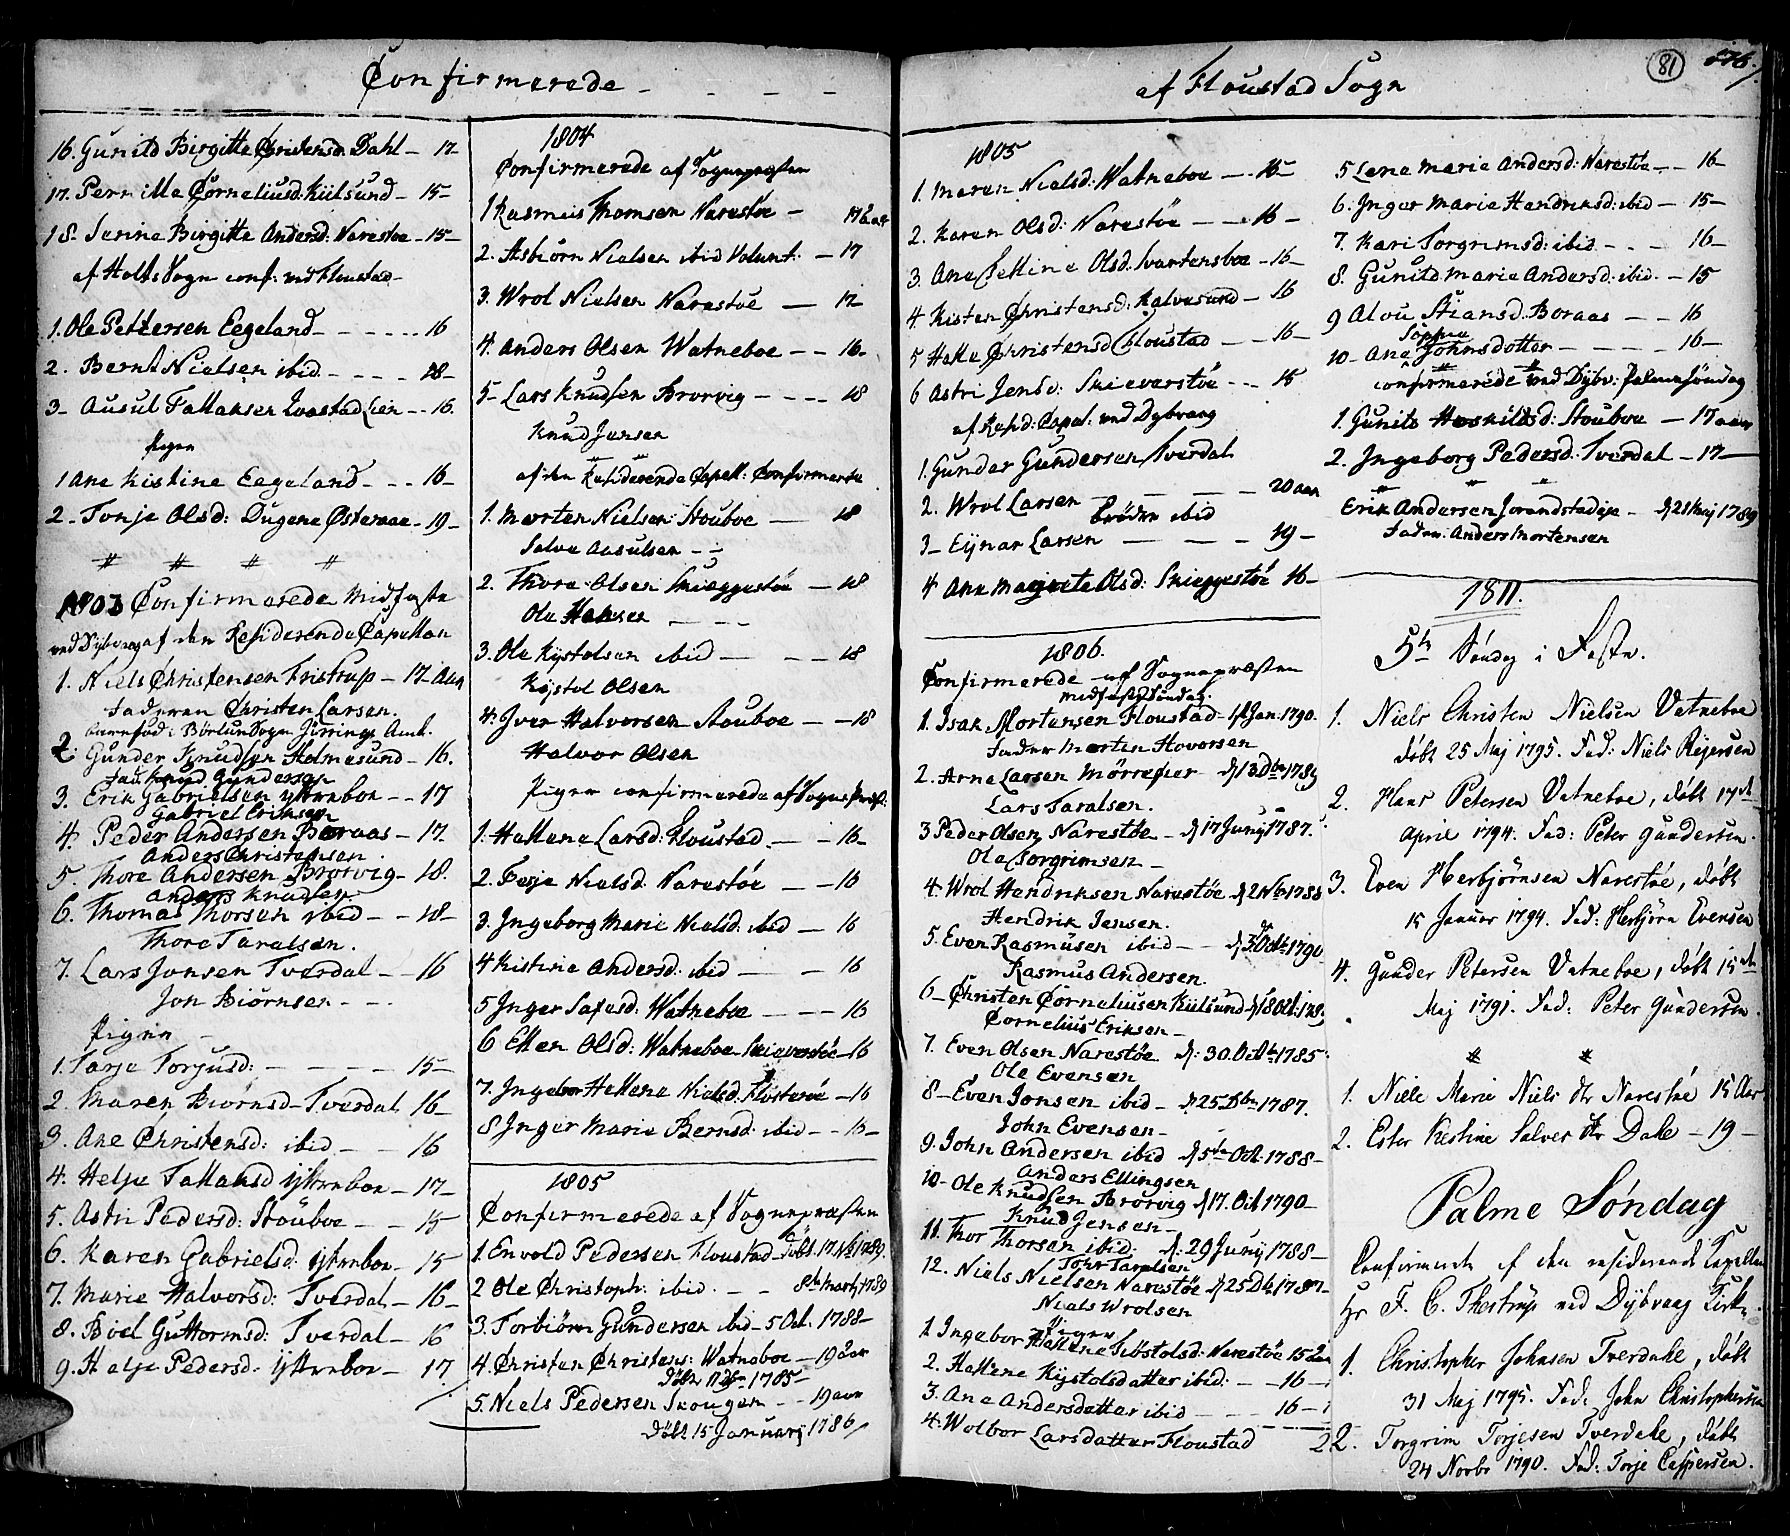 Confirmerede - - - -
16. Gunild Birgitte Christensd. Dahl - 17-
17. Pernille Corneliusd. Kiilsund - 15-
18- Serine Birgitte Andersd: Narestøe - 15-
af Holts Sogn conf: ved Floustad
1. Ole Pettersen Eegeland - - - - - 16
2. Bernt Nielsen ibid - - - - 18-
3- Ausul Tallaksen - - 16.
Pigen
1 Ane Kistine Eegeland - - - 16-
2- Tonje Olsd: Dugene Østeraae - 19-
1803 Confirmerede Midfaste
ved Dybvaag af den Residerende Capellan
1. Niels Christensen Tristrup - 17 Aar
Faderen Christen Larsen.
2. Gunder Knudsen Holmesund - 16.
Fad: Knud Gundersen
3. Erik Gabrielsen Ytterboe - - 17
Gabriel Eriksen
4. Peder Andersen Boraas - 17.
Anders Christensen.
5. Thore Andersen Brorvig - 18.
Anders Knudsen
6. Thomas Thorsen ibid - - 18-
Thore Taralsen.
7. Lars Jonsen Tverdal - - 16
Jon Biørnsen - - -
Pigen -
1. Tarje Torjusd: - - - - 15-
2. Maren Biørnsd - Tverdal 16-
3. Ane Christensd: ibid - - 16
4. Helje Tallaksd Ytterboe - 17-
5. Astri Pedersd: Stouboe - - 15
6. Karen Gabrielsd: Ytterboe - 15
7. Marie Halvorsd: Tverdal - 16-
8. Boel Guttormsd: Tverdal - 16
9. Helje Pedersd: Ytterboe - 17
1804
Confirmerede af Sognepræsten
1 Rasmus Thomsen Narestøe - 17 aar
2. Asbiørn Nielsen ibid Volunt: - 17
3. Wrol Nielsen Narestøe - 17-
4. Anders Olsen Watneboe - - 16-
5- Lars Knudsen Brorvig - - - - 18
Knud Jensen
af den Residerende Capell: Confirmerte
1. Morten Nielsen Stouboe - 18
Salve Aasulsen - -
2. Thore Olsen Skieggestøe - 18
Ole Hansen - - -
3. Ole Kystolsen ibid - - - 18
Kystol Olsen
4. Iver Halvorsen Stouboe - - 18
Halvor Olsen
Piger confirmerede af Sognepræst:
1. Hallene Larsd: Floustad - - 16-
2. Terje Nielsd. Narestøe - - 16
3. Ingeborg Marie Nielsd: ibid - 16
4 Kistine Andersd: ibid - - 16
5 Inger Safesd: Watneboe - - - 16
6 Ellen Olsd: Watneboe Skieverstøe 16
7. Ingebor Hellene Nielsd. Flosterøe - 16
8 Inger Marie Bernsd: ibid - - 16-
1805
Confirmerede af Sognepræsten
1. Envold Pedersen Floustad - døbt 17. Nb 1789.
2 Ole Christoph: ibid. - - 8de Marti 1789
3. Torbiørn Gundersen ibid - 5 Oct. 1788-
4. Christen Christens: Watneboe - 19 aar
Døbt 11 1785-
5. Niels Pedersen Skougen - - 19 aar
Døbt 15 Januarij 1786
af Floustad Sogn
81
576.
1805
1. Maren Nielsd: Watneboe - - 15-
2. Karen Olsd: Narestøe - - - 16-
3. Ane Olsd. Svartensboe - 16-
4. Kisten Christensd: Kalvesund - 16
5 Helle Christensd Floustad - - 16-
6 Astri Jensd: Skieverstøe - - 15
af Resid: Capel: ved Dybvaag
1. Gunder Gundersen Tverdal
2. Wrol Larsen - - - 20 aar
brødre ibid
3- Eynar Larsen - - - 19-
4 Ane Magrete Olsd: Skieggestøe 16-
1806.
Confirmerede af Sognepræsten
Midfaste Søndag.
1. Isak Mortensen Floustad - 1st Jan: 1790.
Fader Morten Hovorsen
2. Arne Larsen Mørrefier d 13 Dbr 1789
Lars Taralsen.
3 Peder Olsen Narestøe - d 17 Junij 1787.
Ole Torgrimsen -
4. Wrol Hendriksen Narestøe d 2 Nb 1788
Hendrik Jensen.
5. Even Rasmusen ibid - - d 3 Octb 1790
Rasmus Andersen
6- Christen Corneliusen Kiilsund d 18 Oct. 1789
Cornelius Eriksen -
7. Even Olsen Narestøe d: 30. Octb 1785.
Ole Evensen
8- Even Jonsen ibid - d 25 Dbr 1787.
John Evensen -
9. John Andersen ibid d 5te Oct. 1788-
Anders Ellingsen
10- Ole Knudsen Brorvig d 17. Oct 1790-
Knud Jensen -
11. Thor Thorsen ibid: d: 29 Junij 1788-
Thor Taralsen
12. Niels Nielsen Narestøe d 25 Db 1787-
Niels Wrolsen
Piger
1 Ingebor Hellene Sibstolsd: Narestøe 15 Aar
2. Hellene Kystolsdatter ibid: - - 16-
3. Ane Andersdatter ibid - - - 16-
4. Wolbor Larsdatter Floustad 22
5 Lene Maria Andersd: Narestøe - - 16-
6. Inger Maria Hendriksd: ibid - 15-
7. Kari Torgrimsd: ibid - - - 16-
8. Gunild Maria Andersd: ibid. - 15
9 Alou Stiansd. Boraas - - 16
Sophia
10- Ane Johnsdotter - - - - 16-
confirmerede ved Dybv: Palmesøndag
1. Gunild Haskildsd: Stouboe - 17 aar
2. Ingeborg Pedersd. Tverdal - 17-
Erik Andersen - d 21 Maj 1789
Faderen: Anders Mortensen
1811.
5te Søndag i Faste.
1. Niels Christen Nielsen Vatneboe
døbt 25 Maj 1795. Fad: Niels Rejersen
2. Hans Petersen Vatneboe, døbt 17de
April 1794. Fad: Peter Gundersen.
3. Even Herbjørnsen Narestøe, døbt
15 Januar 1794. Fad: Herbjørn Evensen
4. Gunder Petersen Vatneboe, døbt 15de
Maj 1791. Fad: Peter Gundersen.
1. Niele Marie Niels dtr Narestøe 15 Aar
2. Ester Kestine Salves dtr Dale - 19-
Palme Søndag
Confirmerede af den residerende Capellan
Hr F. C. Thestrup ved Dybvaag Kirke.
1. Christopher Johnsen Tverdale, døbt
31 Maj 1795. Fad: John Christophersen
2. Torgrim Torjesen Tverdale, døbt
24 Novbr 1790. Fad: Torje Caspersen.